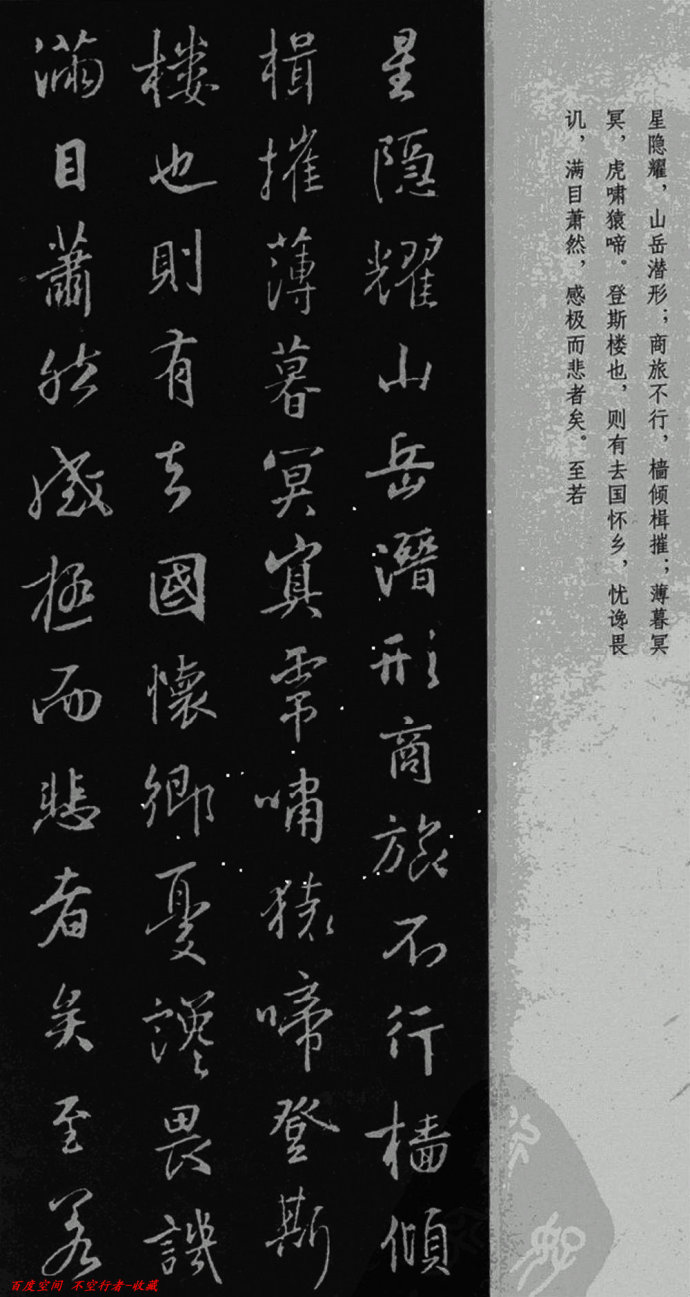 星隐耀，山岳潜形；商旅不行，樯倾楫摧；薄暮冥
冥，虎啸猿啼。登斯楼也，则有去国怀乡，忧谗畏
讥，满目萧然，感极而悲者矣。至若
星隱耀山岳潛形商旅不行檣傾
楫摧薄暮冥冥虎嘯猿啼登斯
樓也則有去國懷鄉憂讒畏譏
滿目蕭然感極而悲者矣至若
百度空间 不空行者-收藏